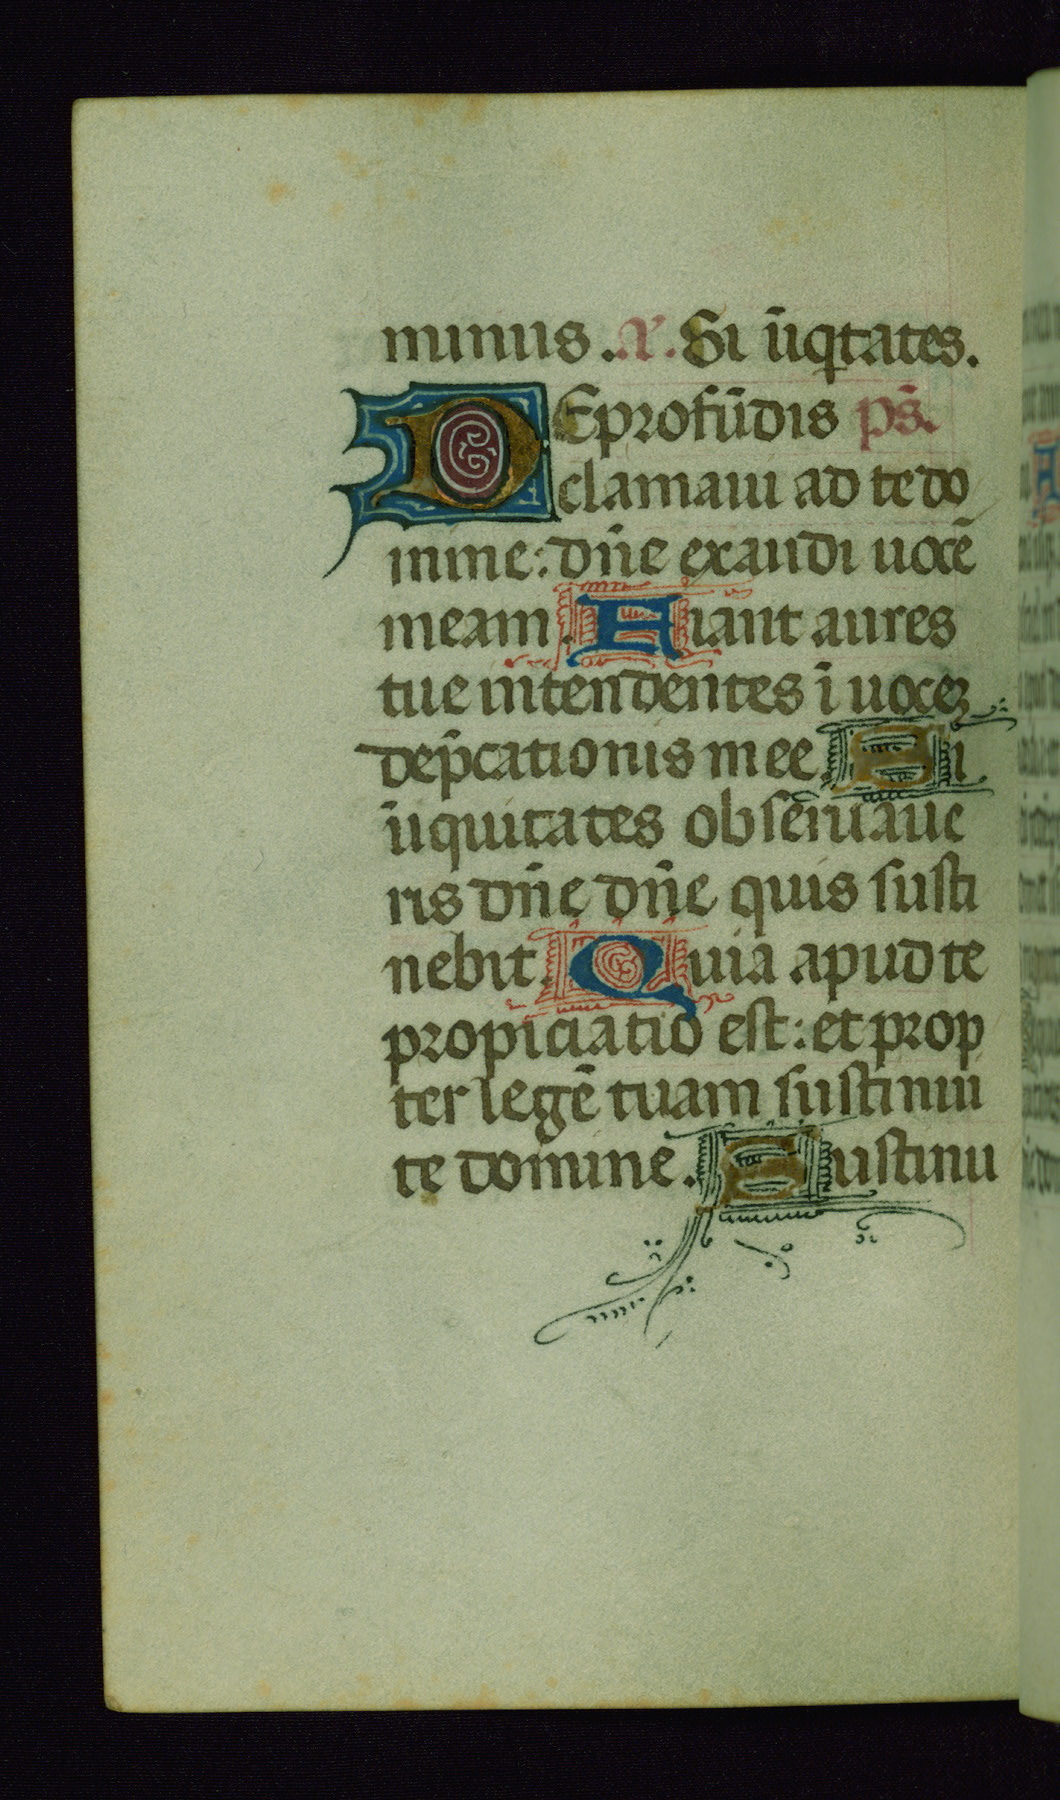 minus. A. Si iīq̄tates.
DE profūdis ps̄.
clamaui ad te do
mine: dn̄e exaudi uocē
meam. Fiant aures
tue intendentes ī uocez
dep̄cationis mee. Si
iīquitates obseruaue
ris dn̄e dn̄e quis susti
nebit. Quia apud te
propiciatio est: et prop
ter legē tuam sustinui
te domine. Sustinu